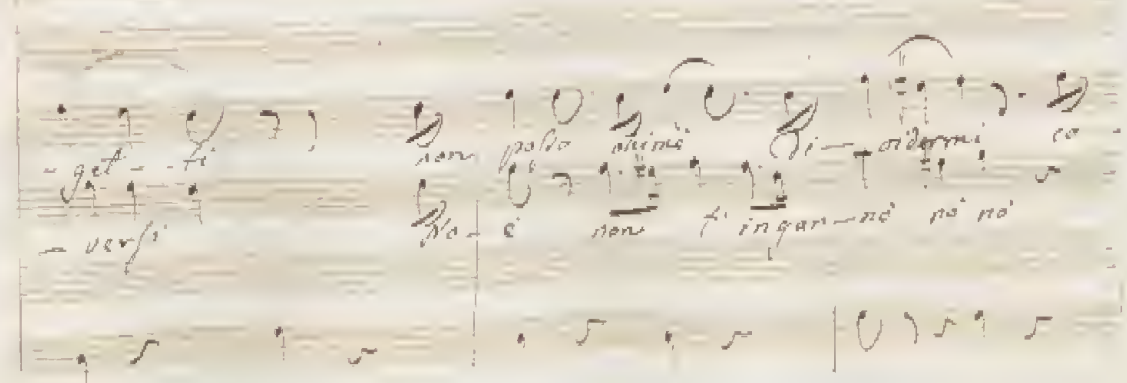 -get--ti non posso ohimè Di-vidermi co
-versi No-è non t'ingan-nò nò nò